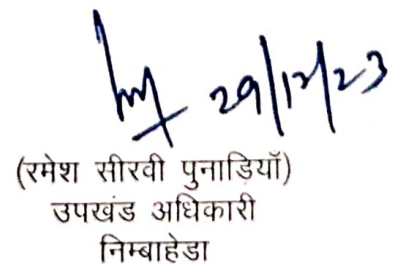 29/12/23
(रमेश सीरवी पुनाडियॉ)
उपखंड अधिकारी
निम्बाहेडा